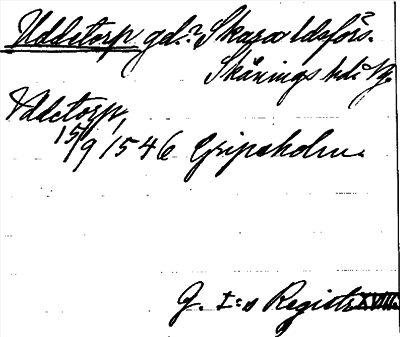 Uddetorp gd.? Skara ldsförs.
Skånings hd. Vg.
Uddetorp,
15/9 1546 Gripsholm.
G. I:s Registr. XVIII.